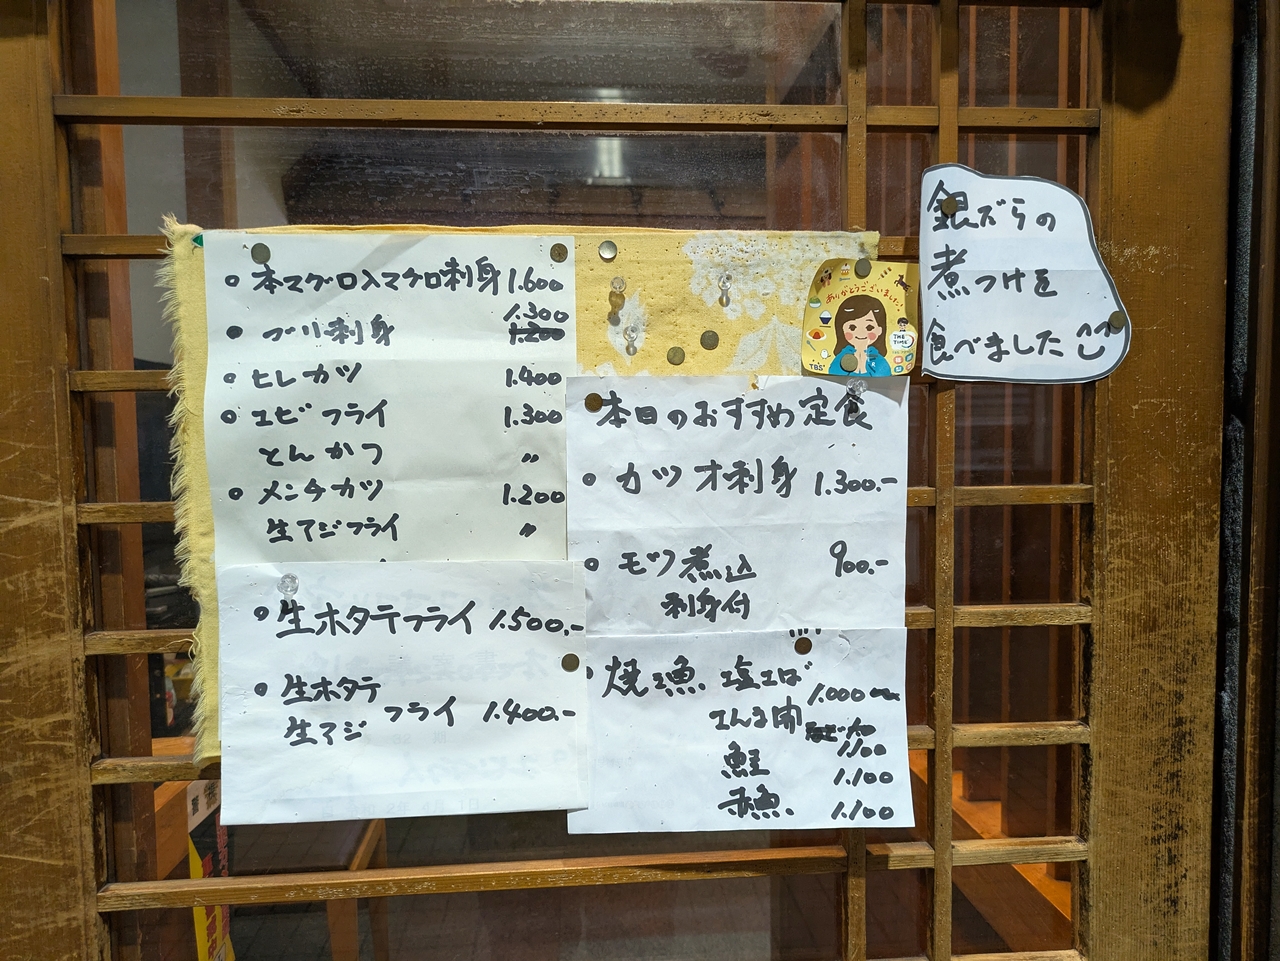 本マグロ入マグロ刺身 1.600
ブリ刺身 1.300
1.200
ヒレカツ 1.400
エビフライ 1.300
とんかつ 〃
メンチカツ 1.200
生アジフライ 〃
生ホタテフライ 1.500.-
生ホタテ
生アジ フライ 1.400.-
ありがとうございました!
THE TIME
TBS
銀だらの
煮つけを
食べました
本日のおすすめ定食
カツオ刺身 1.300.-
モツ煮込 900.-
刺身付
焼魚 塩さば 1.000
さんま開 1.100
鮭 1.100
赤魚 1.100